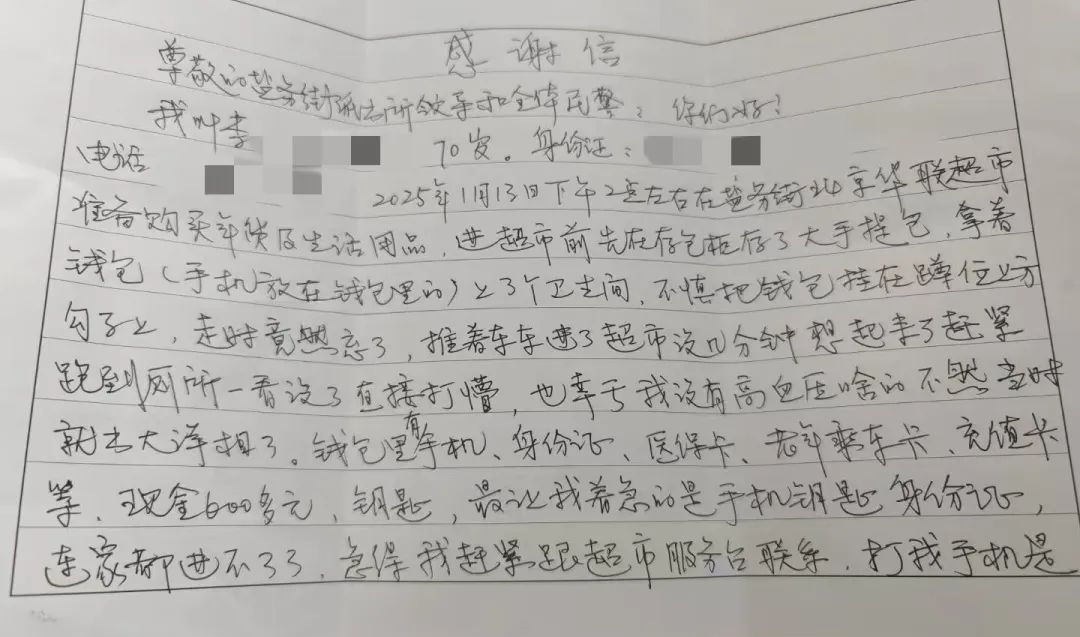 感谢信
尊敬的盐务街派出所领导和全体民警：你们好！
我叫李
70岁。身份证：
电话
2025年1月13日下午2点左右在盐务街北京华联超市
准备购买年货及生活用品，进超市前先在存包柜存了大手提包，拿着
钱包（手机放在钱包里的）上了个卫生间，不慎把钱包挂在蹲位上方
勾子上，走时竟然忘了，推着车车进了超市没几分钟想起来了赶紧
跑到厕所一看没了直接打懵，也幸亏我没有高血压啥的不然当时
就出大洋相了。钱包里有手机、身份证、医保卡、老年乘车卡、充值卡
等、现金600多元、钥匙，最让我着急的是手机钥匙身份证，
连家都进不了了，急得我赶紧跟超市服务台联系，打我手机是